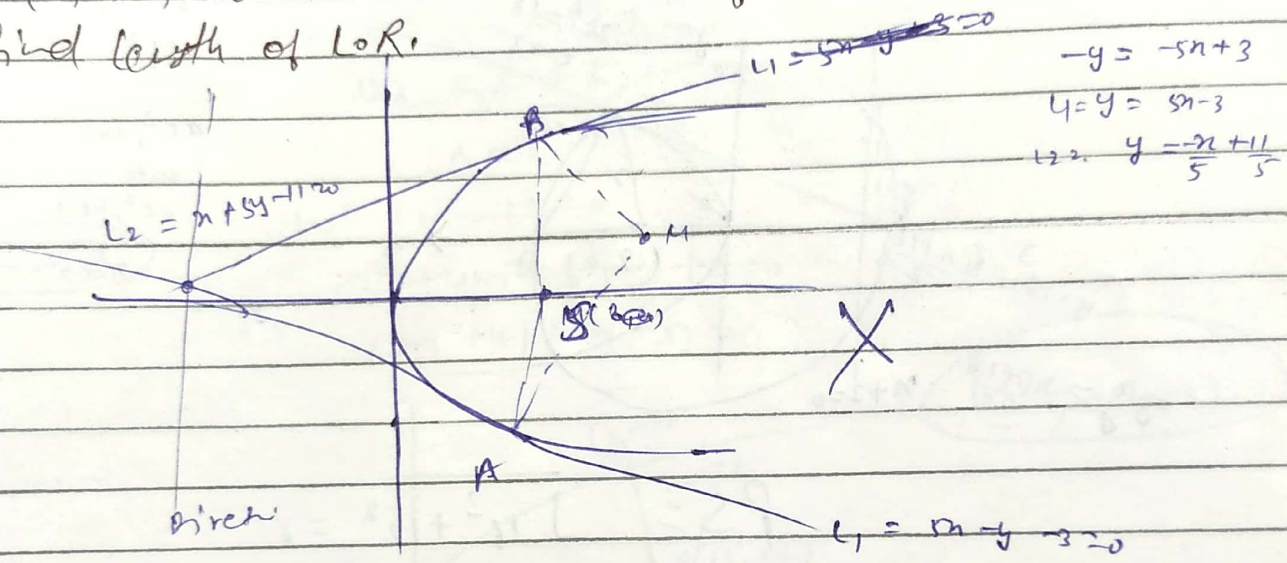 ind length of L.R.
L1 = 5x - y - 3 = 0
-y = -5x + 3
L1 = y = 5x - 3
L2 = y = -x/5 + 11/5
L2 = x + 5y - 11 = 0
B
M
S
A
Direct.
L1 = 5x - y - 3 = 0